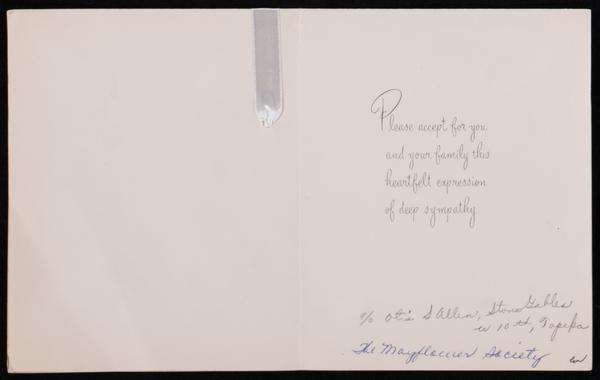 Please accept for you
and your family this
heartfelt expression
of deep sympathy
c/o Otis S Allen, Stone Gables
w 10th, Topeka
The Mayflower Society